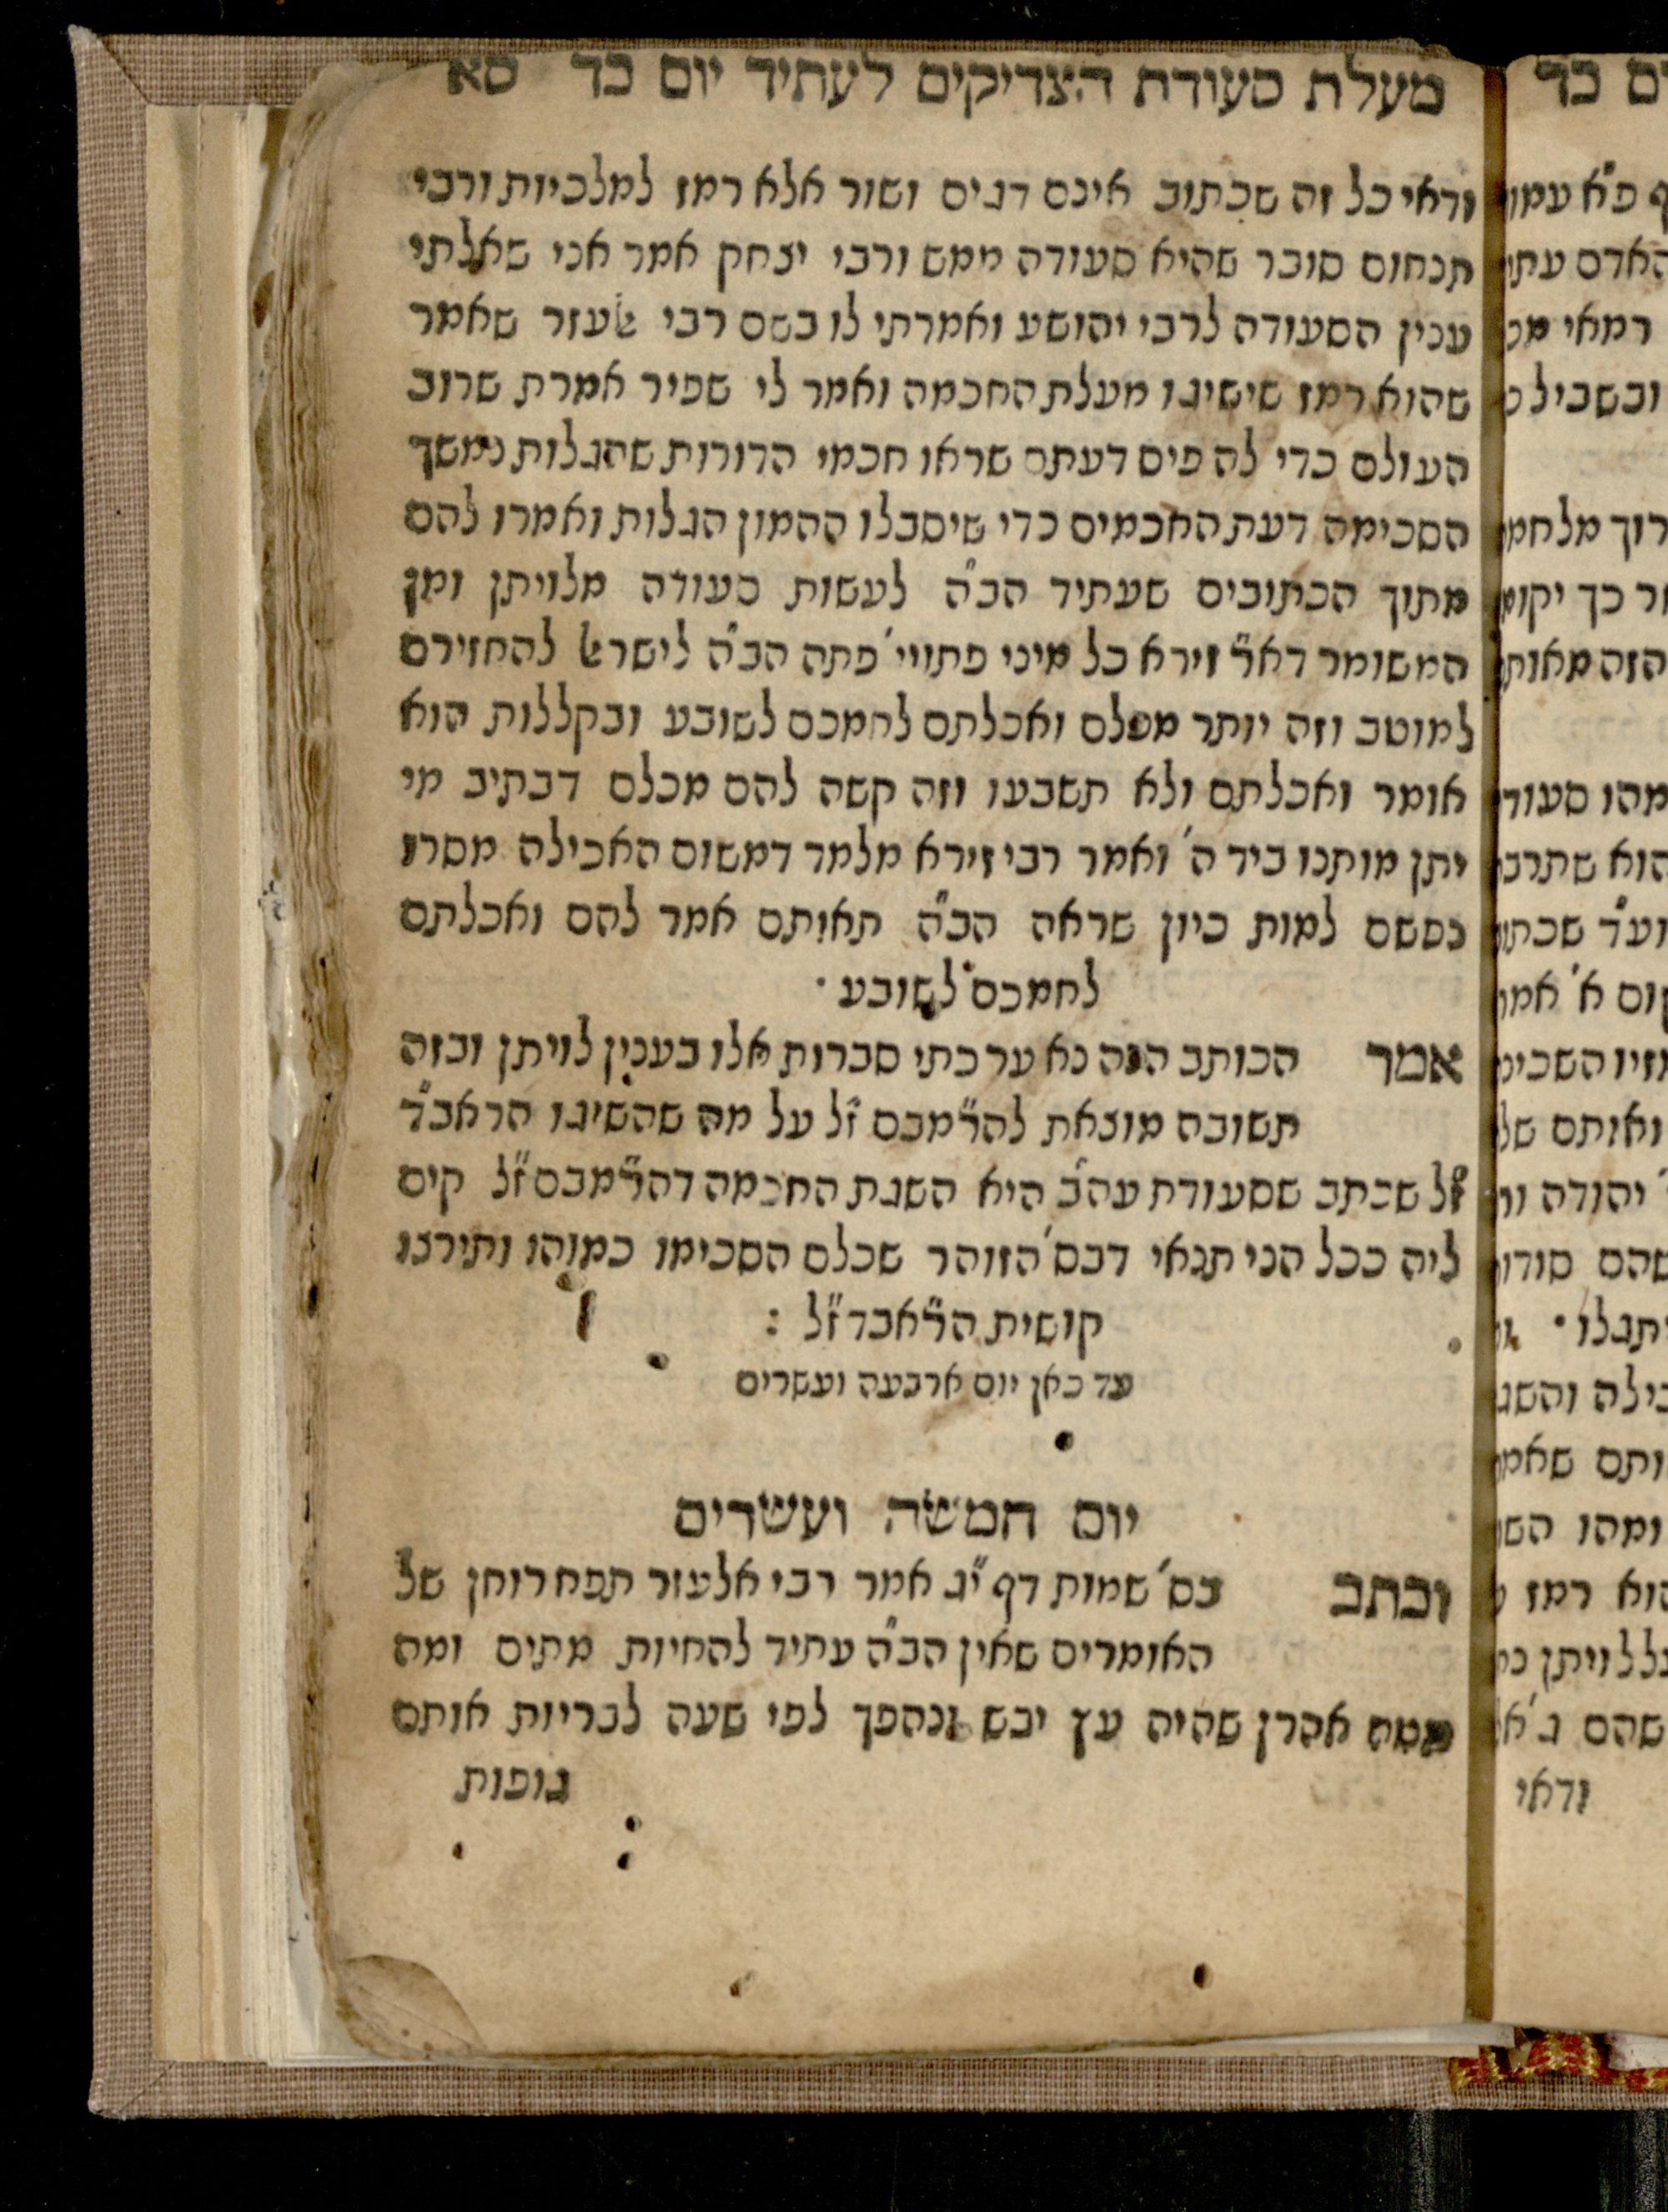 מעלת סעודת הצדיקים לעתיד יום כד סא
ודאי כל זה שכתוב אינם דגים ושור אלא רמז למלכיות ורבי
תנחום סובר שהיא סעודה ממש ורבי יצחק אמר אני שאלתי
ענין הסעודה לרבי יהושע ואמרתי לו בשם רבי ﭏעזר שאמר
שהוא רמז שישיגו מעלת החכמה ואמר לי שפיר אמרת שרוב
העולם כדי להפיס דעתם שראו חכמי הדורות שהגלות נמשך
הסכימה דעת החכמים כדי שיסבלו ההמון הגלות ואמרו להם
מתוך הכתובים שעתיד הב"ה לעשות סעודה מלויתן ומן
המשומר דא"ר זירא כל מיני פתויי' פתה הב"ה לישרﭏ להחזירם
למוטב וזה יותר מכלם ואכלתם לחמכם לשובע ובקללות הוא
אומר ואכלתם ולא תשבעו וזה קשה להם מכלם דכתיב מי
יתן מותנו ביד ה' ואמר רבי זירא מלמד דמשום האכילה מסרו
נפשם למות כיון שראה הב"ה תאותם אמר להם ואכלתם
לחמכם לשובע ·
אמר הכותב הנה נא ער כתי סברות אלו בענין לויתן ובזה
תשובה מוצאת להר"מבם ז"ל על מה שהשיגו הראב"ד
ז"ל שכתב שסעודת עה"ב היא השגת החכמה דהר"מבם ז"ל קים
ליה ככל הני תנאי דבס' הזוהר שכלם הסכימו כמוהו ותירצו
קושית הר"אבד ז"ל :
עד כאן יום ארבעה ועשרים
יום חמשה ועשרים
וכתב בס' שמות דף י"ג אמר רבי אלעזר תפח רוחן של
האומרים שאין הב"ה עתיד להחיות מתים ומה
מטה אהרן שהיה עץ יבש ונהפך לפי שעה לבריות אותם
גופות